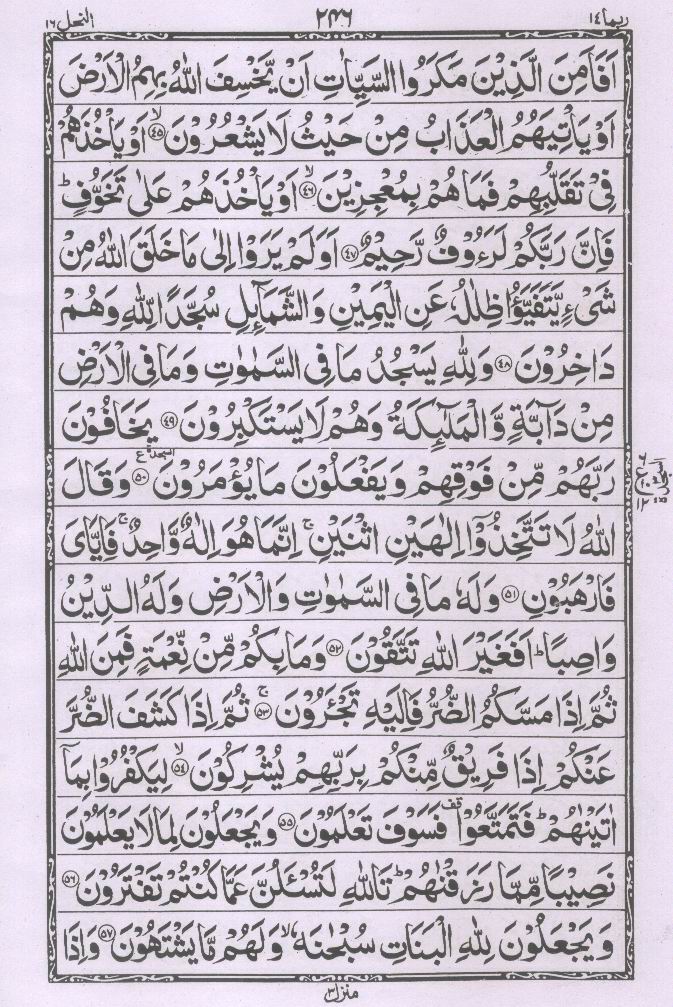 ربما ١٤ ٢٤٦ النحل ١٦
اَفَاَمِنَ الَّذِيْنَ مَكَرُوا السَّيِّاٰتِ اَنْ يَّخْسِفَ اللّٰهُ بِهِمُ الْاَرْضَ
اَوْ يَاْتِيَهُمُ الْعَذَابُ مِنْ حَيْثُ لَا يَشْعُرُوْنَ ۙ‏﴿۴۵﴾ اَوْ يَاْخُذَهُمْ
فِیْ تَقَلُّبِهِمْ فَمَا هُمْ بِمُعْجِزِيْنَ ۙ‏﴿۴۶﴾ اَوْ يَاْخُذَهُمْ عَلٰى تَخَوُّفٍ ؕ
فَاِنَّ رَبَّكُمْ لَرَءُوْفٌ رَّحِيْمٌ ﴿۴۷﴾ اَوَلَمْ يَرَوْا اِلٰى مَا خَلَقَ اللّٰهُ مِنْ
شَیْءٍ يَّتَفَيَّؤُا ظِلٰلُهٗ عَنِ الْيَمِيْنِ وَالشَّمَآئِلِ سُجَّدًا لِّلّٰهِ وَهُمْ
دَاخِرُوْنَ ﴿۴۸﴾ وَلِلّٰهِ يَسْجُدُ مَا فِی السَّمٰوٰتِ وَمَا فِی الْاَرْضِ
مِنْ دَآبَّةٍ وَّالْمَلٰٓئِكَةُ وَهُمْ لَا يَسْتَكْبِرُوْنَ ﴿۴۹﴾ يَخَافُوْنَ
رَبَّهُمْ مِّنْ فَوْقِهِمْ وَيَفْعَلُوْنَ مَا يُؤْمَرُوْنَ ﴿۵۰﴾ وَقَالَ
اللّٰهُ لَا تَتَّخِذُوْٓا اِلٰهَيْنِ اثْنَيْنِ ۚ اِنَّمَا هُوَ اِلٰهٌ وَّاحِدٌ ۚ فَاِيَّایَ
فَارْهَبُوْنِ ﴿۵۱﴾ وَلَهٗ مَا فِی السَّمٰوٰتِ وَالْاَرْضِ وَلَهُ الدِّيْنُ
وَاصِبًا ؕ اَفَغَيْرَ اللّٰهِ تَتَّقُوْنَ ﴿۵۲﴾ وَمَا بِكُمْ مِّنْ نِّعْمَةٍ فَمِنَ اللّٰهِ
ثُمَّ اِذَا مَسَّكُمُ الضُّرُّ فَاِلَيْهِ تَجْئَرُوْنَ ۚ‏﴿۵۳﴾ ثُمَّ اِذَا كَشَفَ الضُّرَّ
عَنْكُمْ اِذَا فَرِيْقٌ مِّنْكُمْ بِرَبِّهِمْ يُشْرِكُوْنَ ۙ‏﴿۵۴﴾ لِيَكْفُرُوْا بِمَآ
اٰتَيْنٰهُمْ ؕ فَتَمَتَّعُوْا قف فَسَوْفَ تَعْلَمُوْنَ ﴿۵۵﴾ وَيَجْعَلُوْنَ لِمَا لَا يَعْلَمُوْنَ
نَصِيْبًا مِّمَّا رَزَقْنٰهُمْ ؕ تَاللّٰهِ لَتُسْئَلُنَّ عَمَّا كُنْتُمْ تَفْتَرُوْنَ ﴿۵۶﴾
وَيَجْعَلُوْنَ لِلّٰهِ الْبَنَاتِ سُبْحٰنَهٗ ۙ وَلَهُمْ مَّا يَشْتَهُوْنَ ﴿۵۷﴾ وَاِذَا
منزل ٣